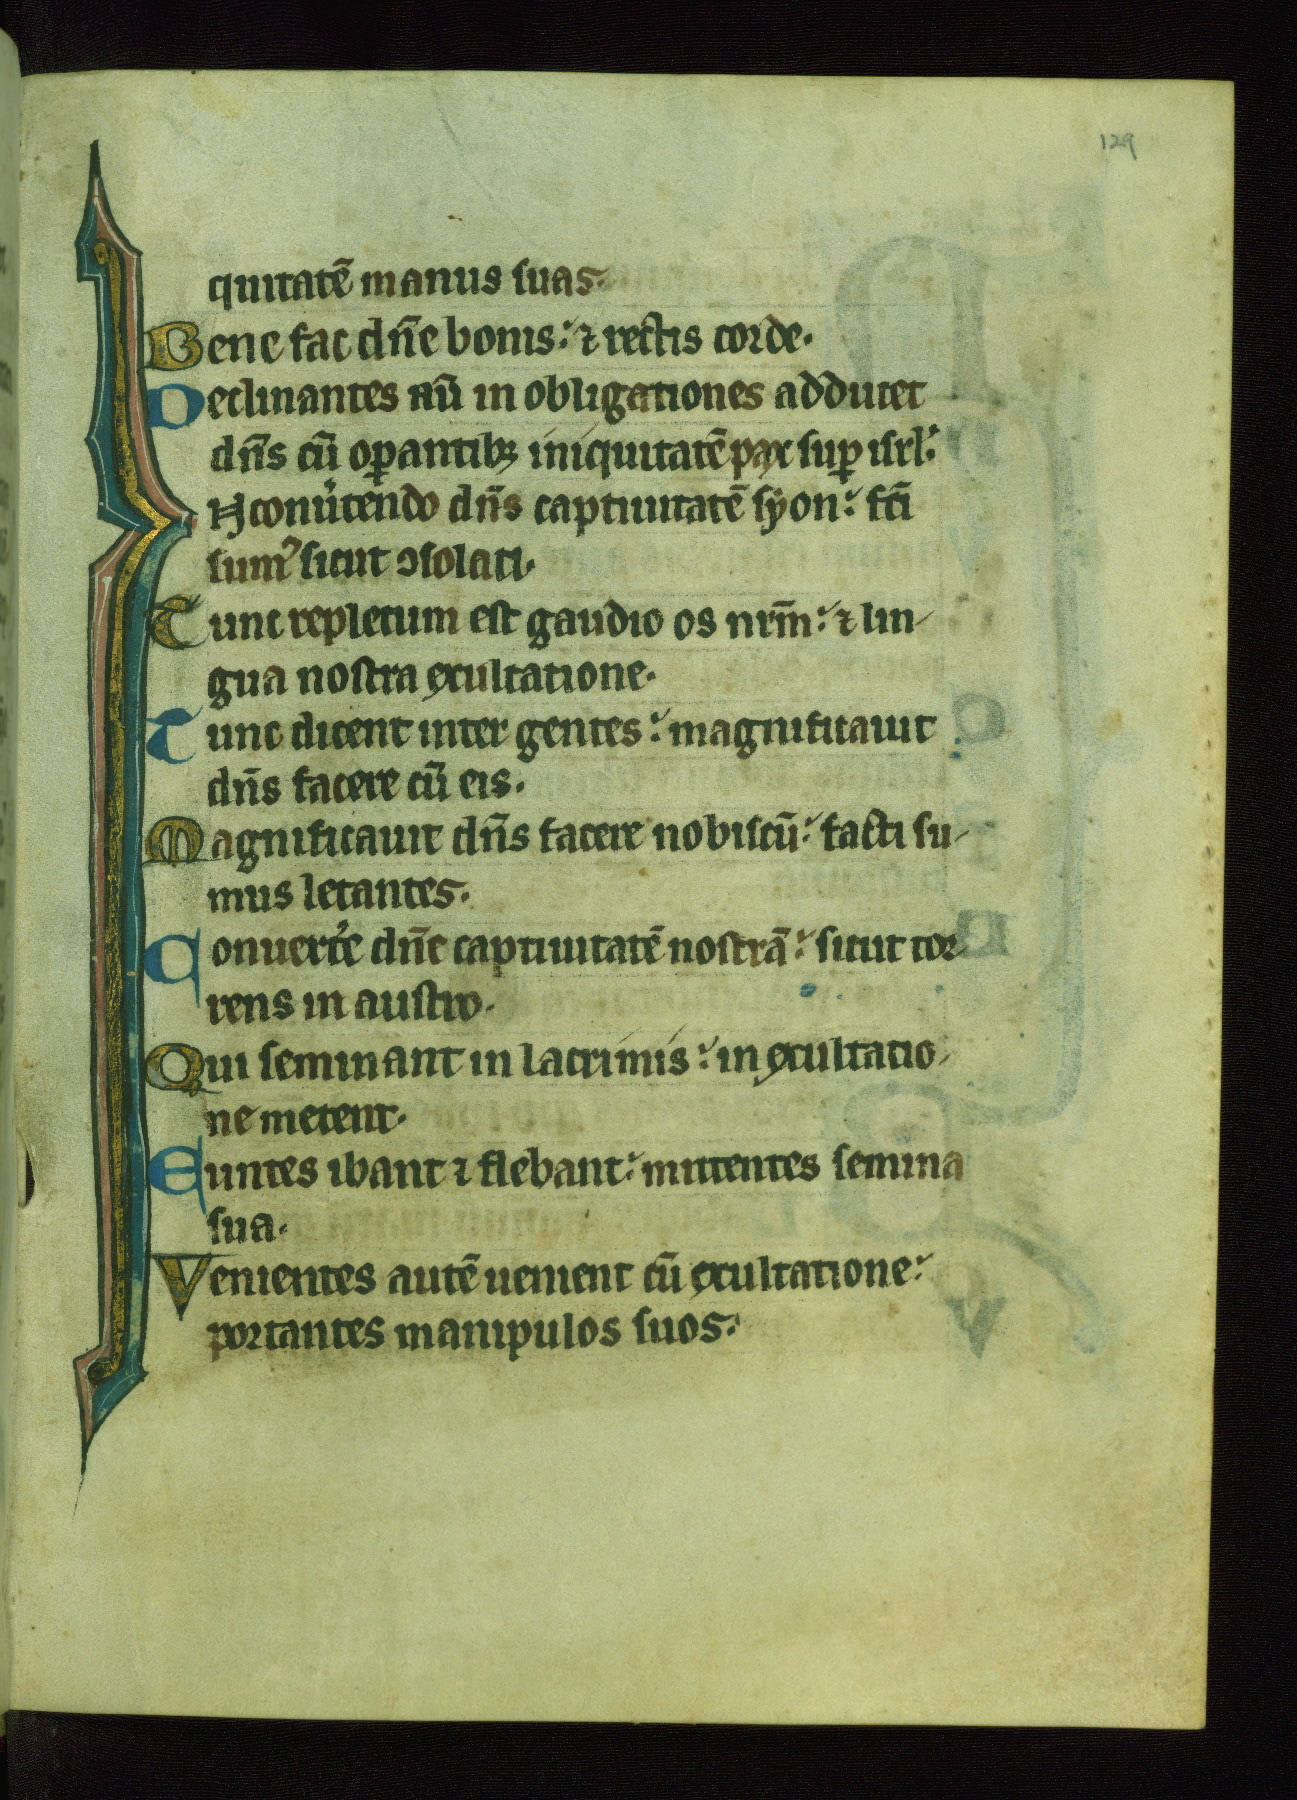 129
quitatē manus suas·
Bene fac dn̄e bonis: ⁊ rectis corde·
Declinantes aū in obligationes adducet
dn̄s cū oꝑantibꝫ iniquitatē pax suꝑ isrl̓·
Nconu̓tendo dn̄s captiuitatē syon: fc̄i
sumꝰ sicut ꝯsolati·
Tunc repletum est gaudio os nrm̄: ⁊ lin-
gua nostra exultatione·
Tunc dicent inter gentes: magnificauit
dn̄s facere cū eis·
Magnificauit dn̄s facere nobiscū: facti su-
mus letantes·
Conuert̓e dn̄e captiuitatē nostrā: sicut tor-
rens in austro·
Qui seminant in lacrimis: in exultatio-
ne metent·
Euntes ibant ⁊ flebant: mittentes semina
sua·
Venientes autē uenient cū exultatione:
portantes manipulos suos·